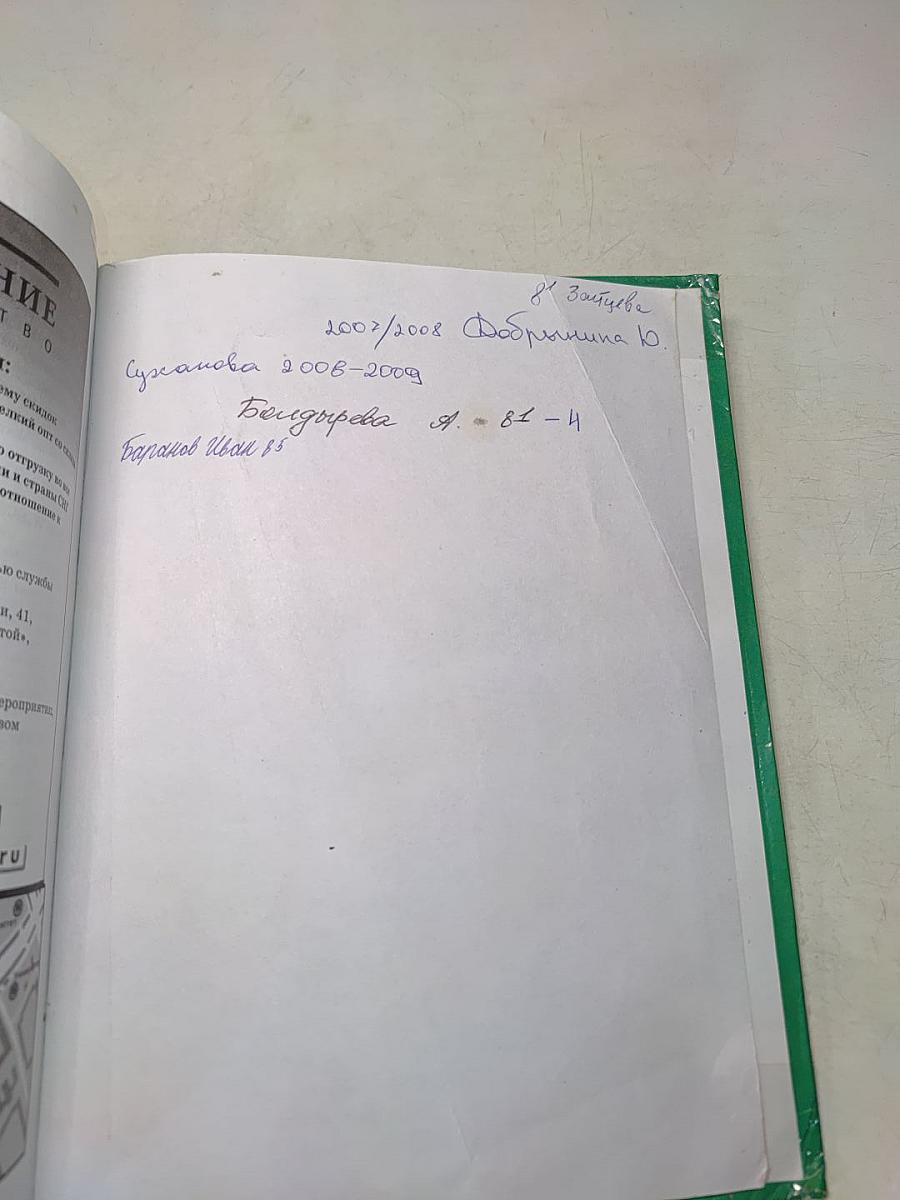 НИЕ
Т В О
ему скидок
елкий опт со
отгрузку во
и и страны СНГ
отношение к
ью службы
и, 41,
той»,
ероприятиц
вом
ru
8¹ Зайцева
2007/2008 Добрынина Ю.
Суханова 2008-2009
Болдырева А. - 81 - 4
Баранов Иван 85